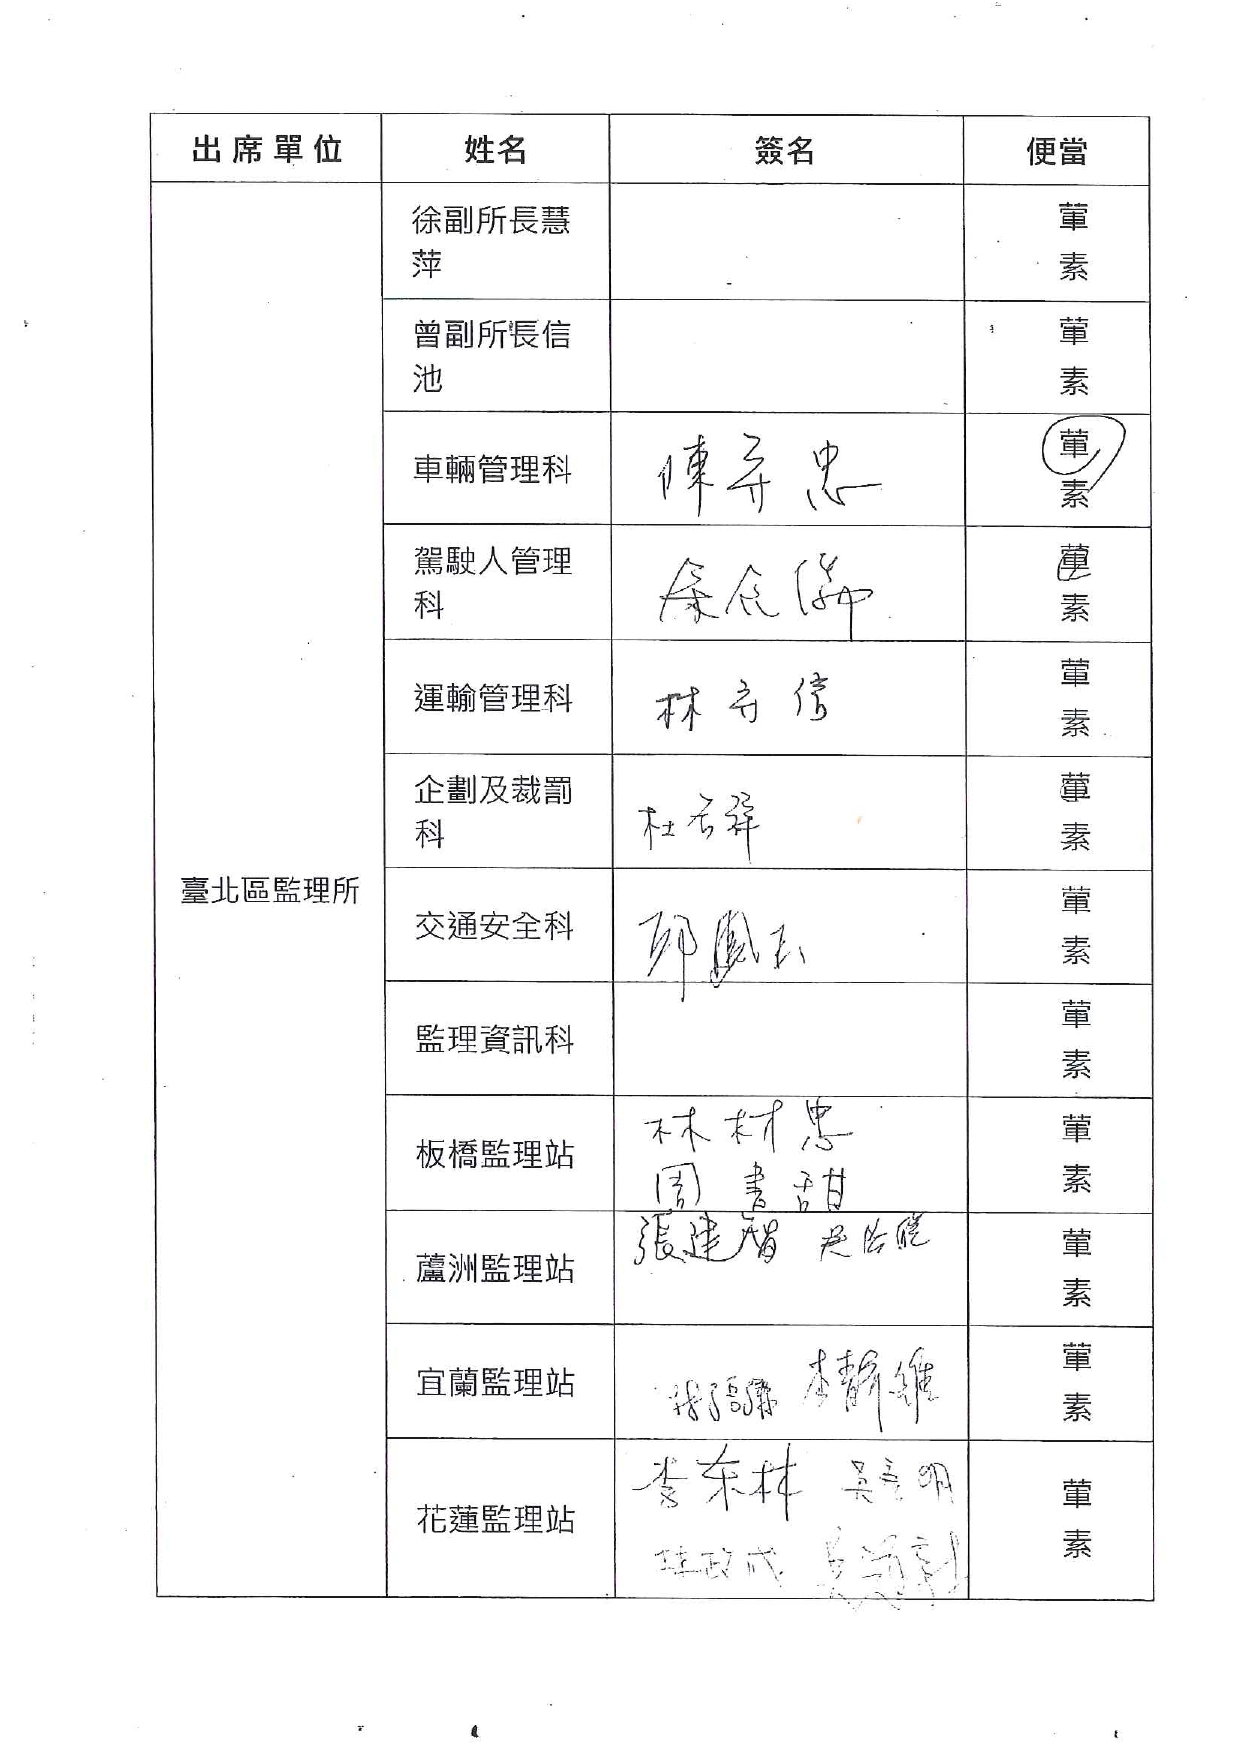 出席單位 姓名 簽名 便當
臺北區監理所
徐副所長慧
萍
葷
素
曾副所長信
池
葷
素
車輛管理科
陳弄忠
葷
素
駕駛人管理
科
葷
素
運輸管理科
林弄信
葷
素
企劃及裁罰
科
杜君祥
葷
素
交通安全科
邱鳳
葷
素
監理資訊科
葷
素
板橋監理站
林材忠
周書甜
葷
素
蘆洲監理站
張建智
葷
素
宜蘭監理站
葷
素
花蓮監理站
李东林
林政成
葷
素